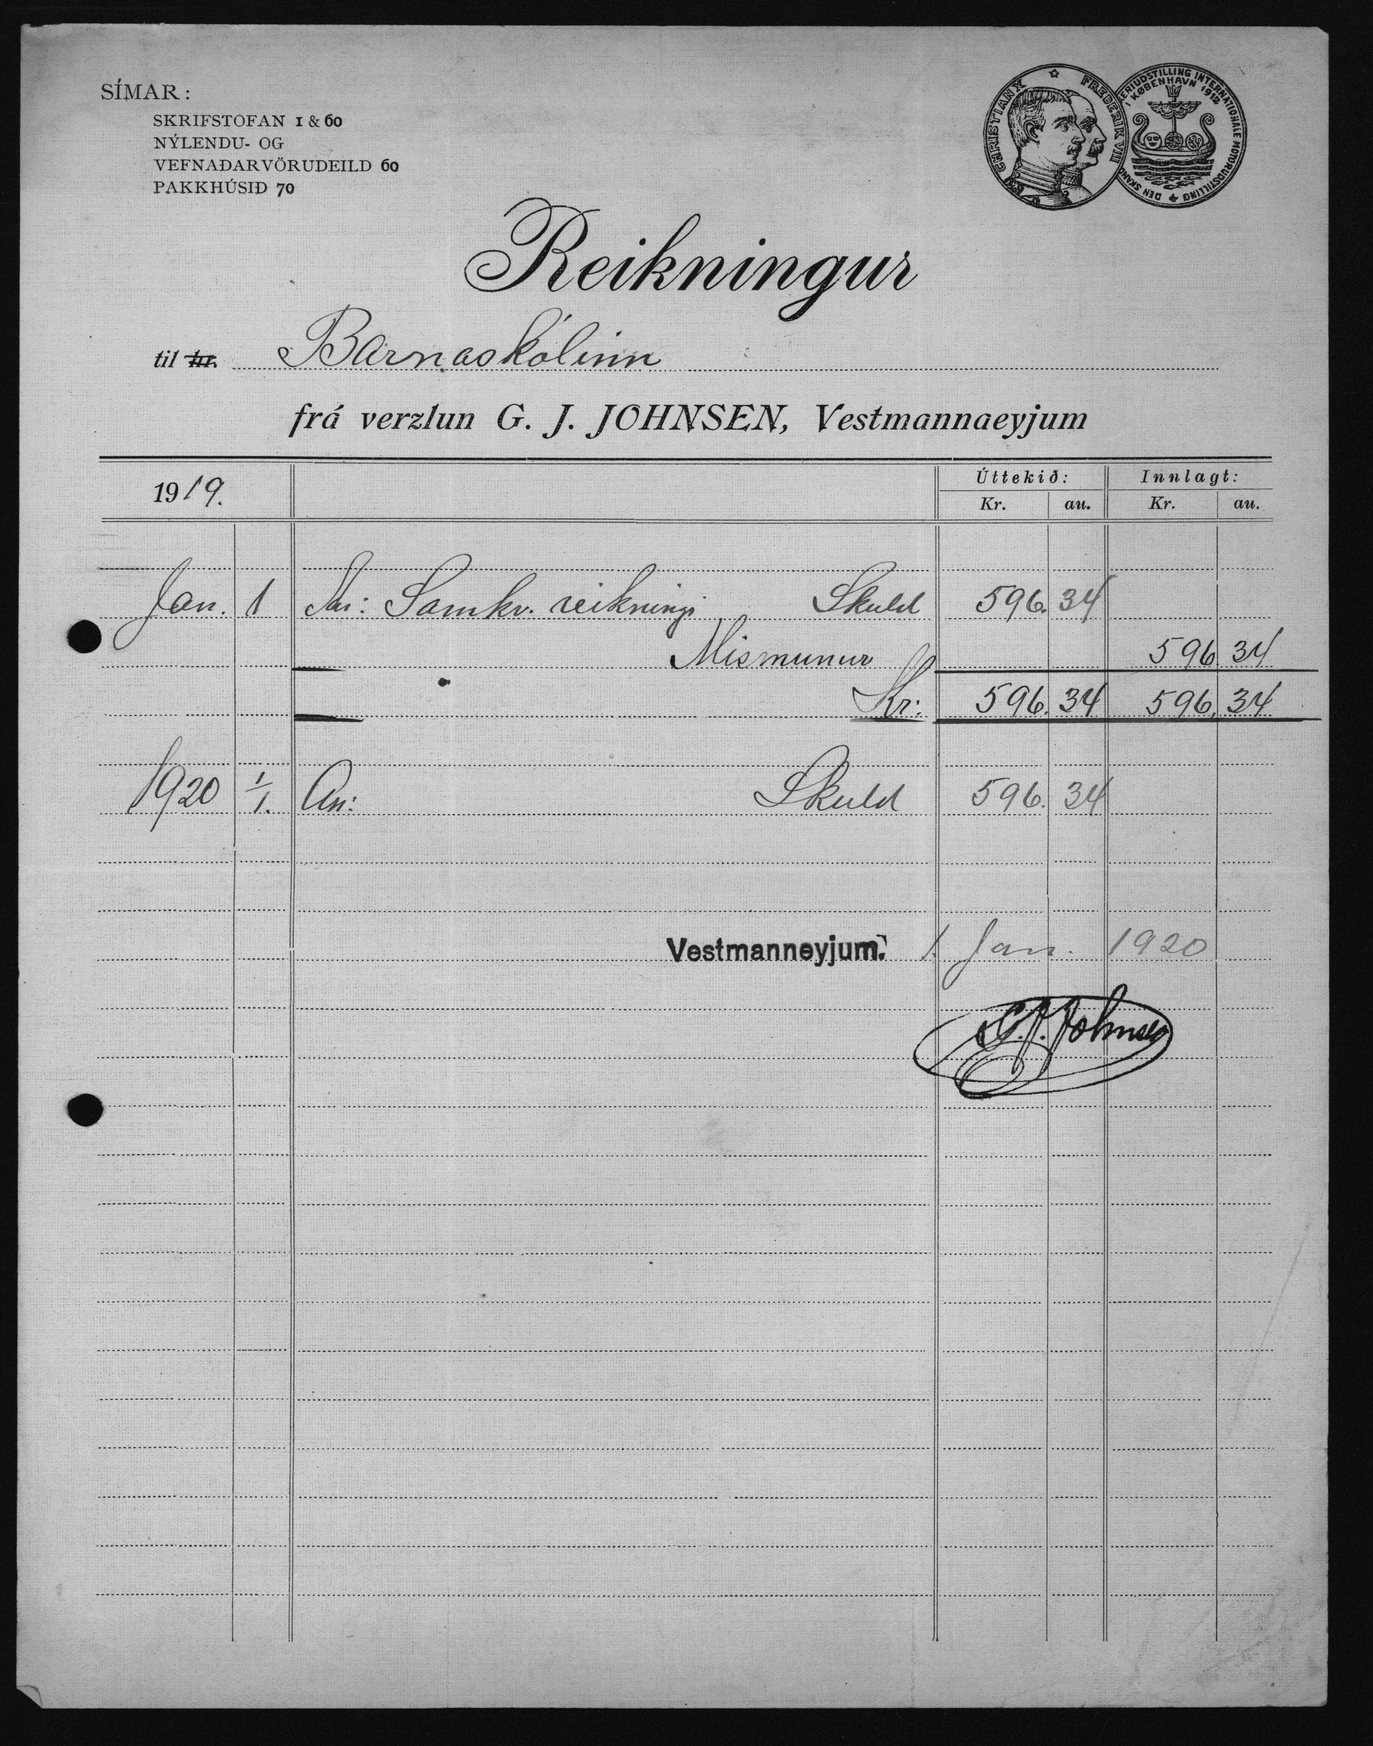 SÍMAR:
SKRIFSTOFAN 1 & 60
NÝLENDU- OG
VEFNAÐARVÖRUDEILD 60
PAKKHÚSIÐ 70
CHRISTIAN X FREDERIK VIII
DEN SKAND ERIUDSTILLING INTERNATIONALE MOTORUDSTILLING
I KØBENHAVN 1912
Reikningur
til hr. Barnaskólinn
frá verzlun G. J. JOHNSEN, Vestmannaeyjum
1919. Úttekið: Innlagt:
Kr. au. Kr. au.
Jan. 1 Samkv. reikningi Skuld 596. 34
Mismunur 596 34
Kr: 596. 34 596. 34
1920 1/1. An: Skuld 596. 34
Vestmanneyjum. 1. Jan. 1920
G. J. Johnsen